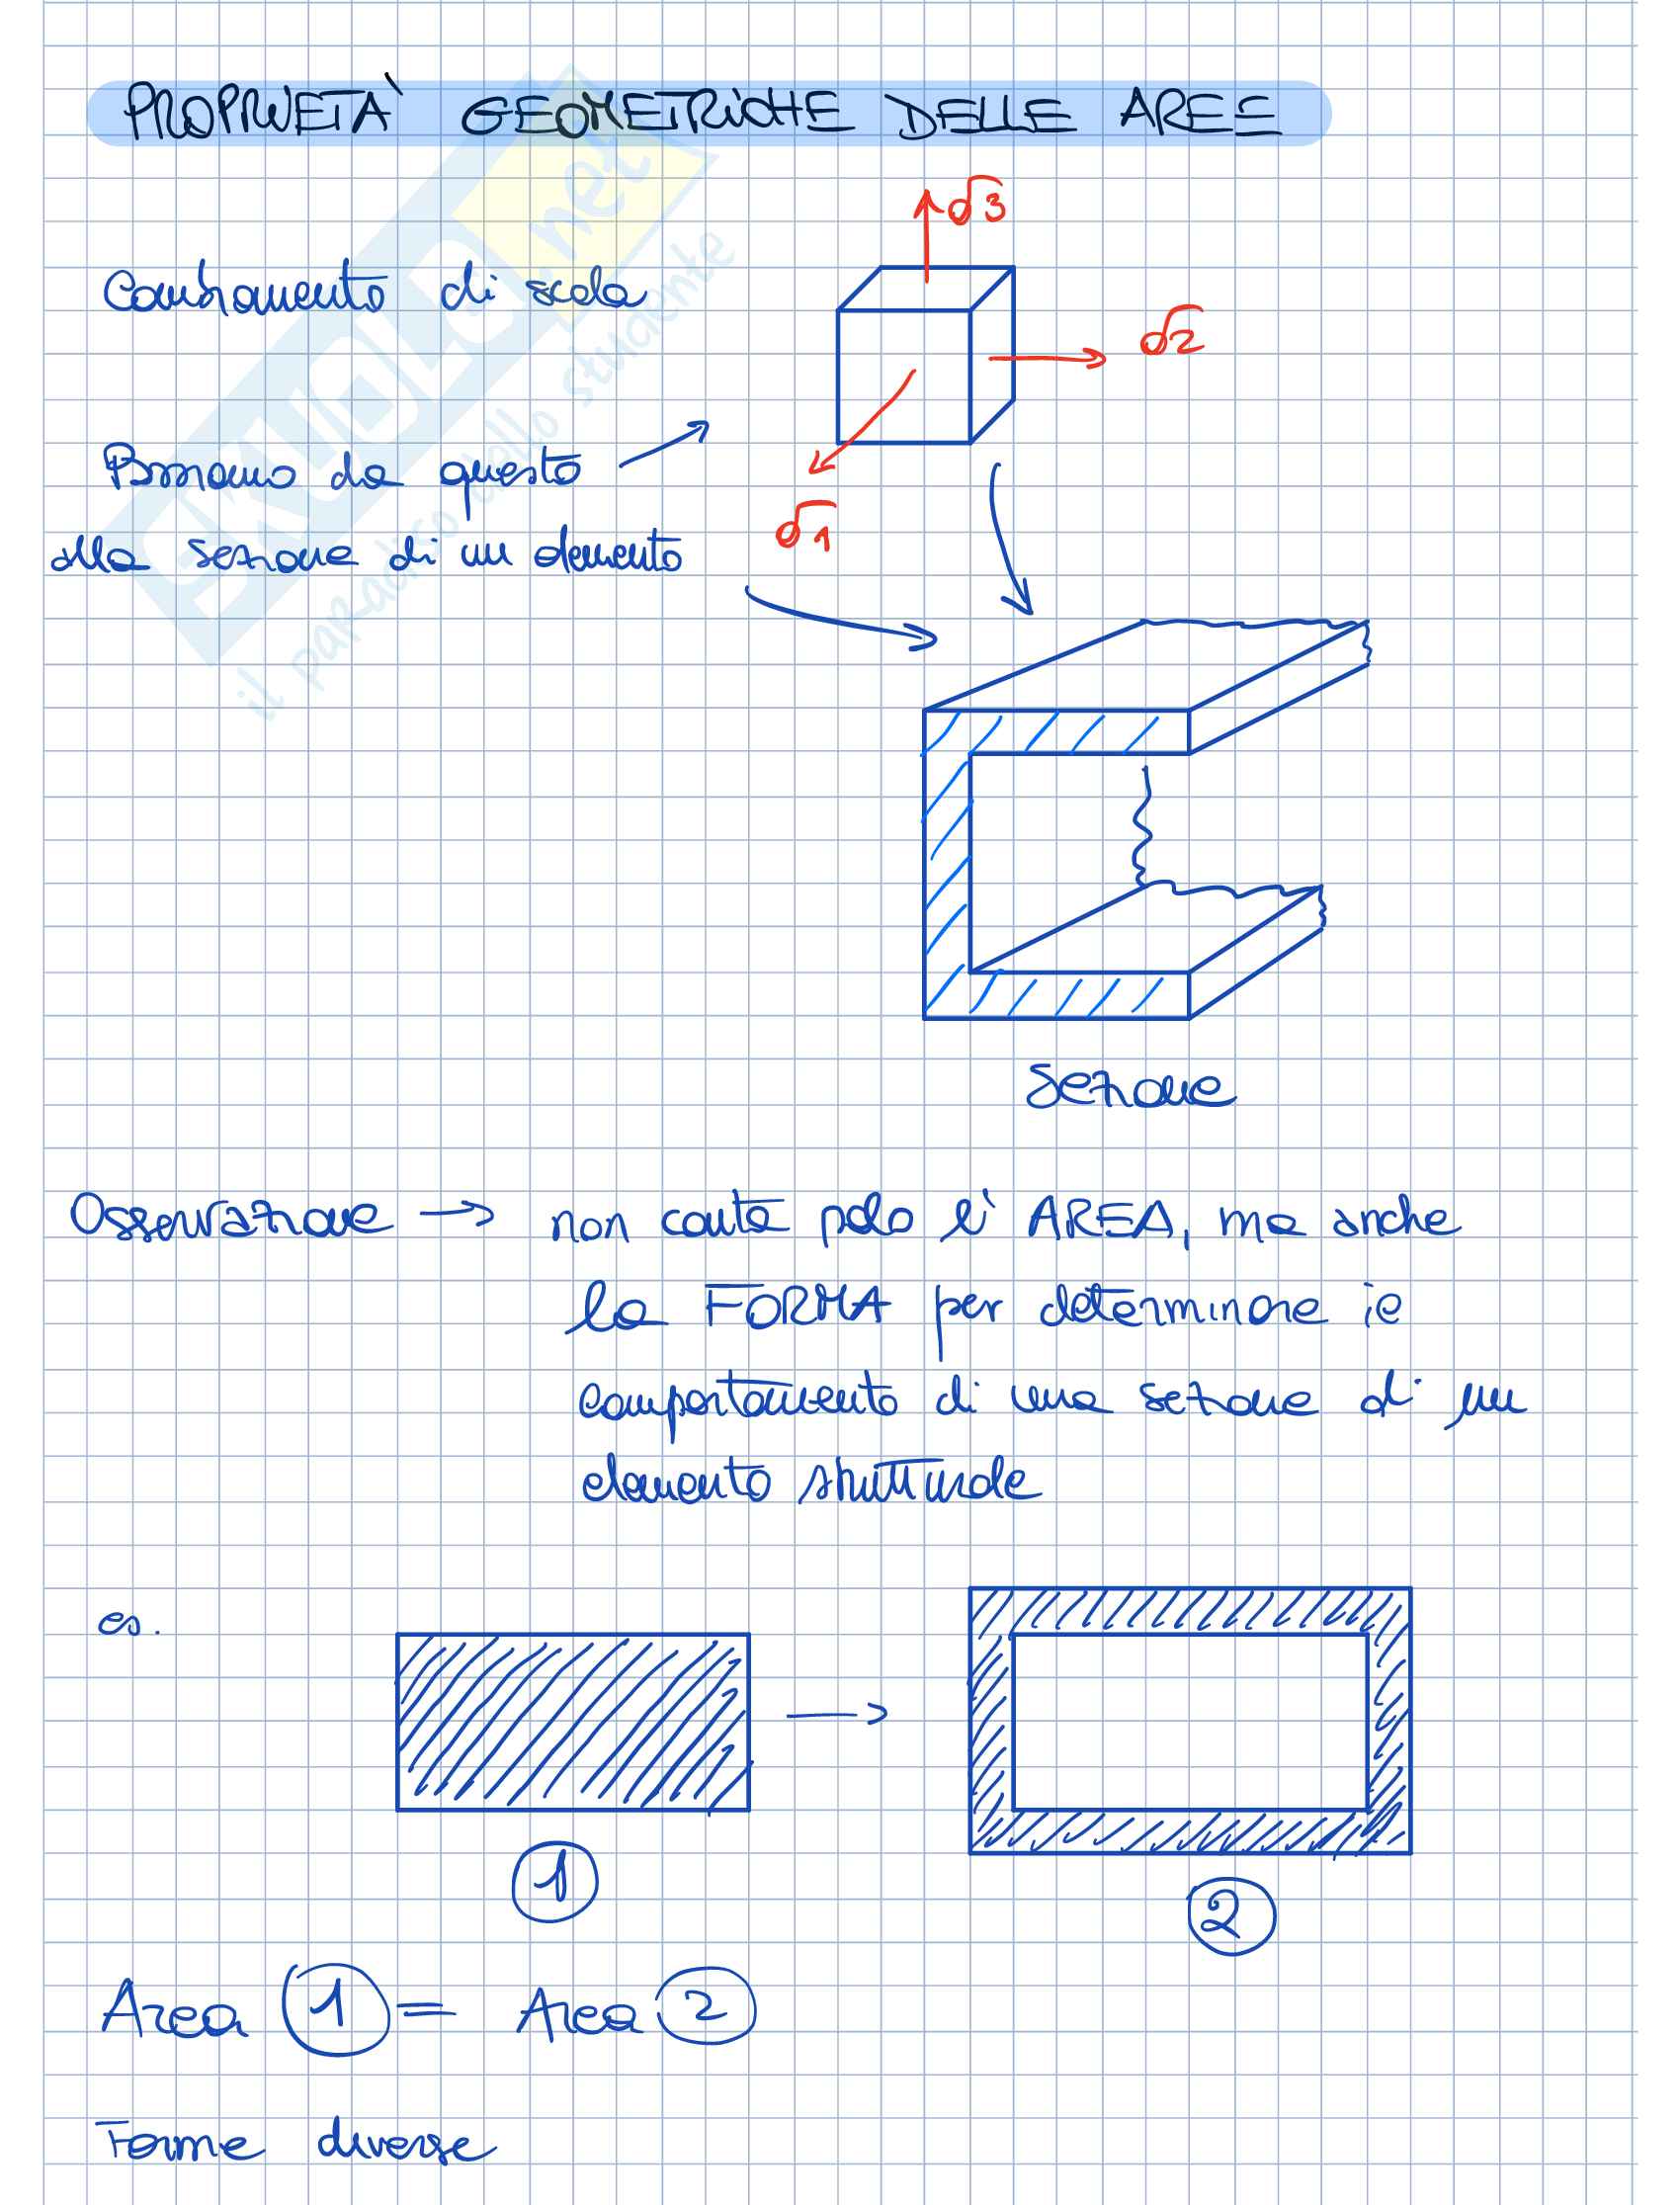 PROPRIETÀ GEOMETRICHE DELLE AREE
σ3
Cambiamento di scala
σ2
Passiamo da questo
σ1
alla sezione di un elemento
sezione
Osservazione → non conta solo l' AREA, ma anche
la FORMA per determinare il
comportamento di una sezione di un
elemento strutturale
es.
→
1
2
Area 1 = Area 2
Forme diverse
SKUOLA.net
il paradiso dello studente